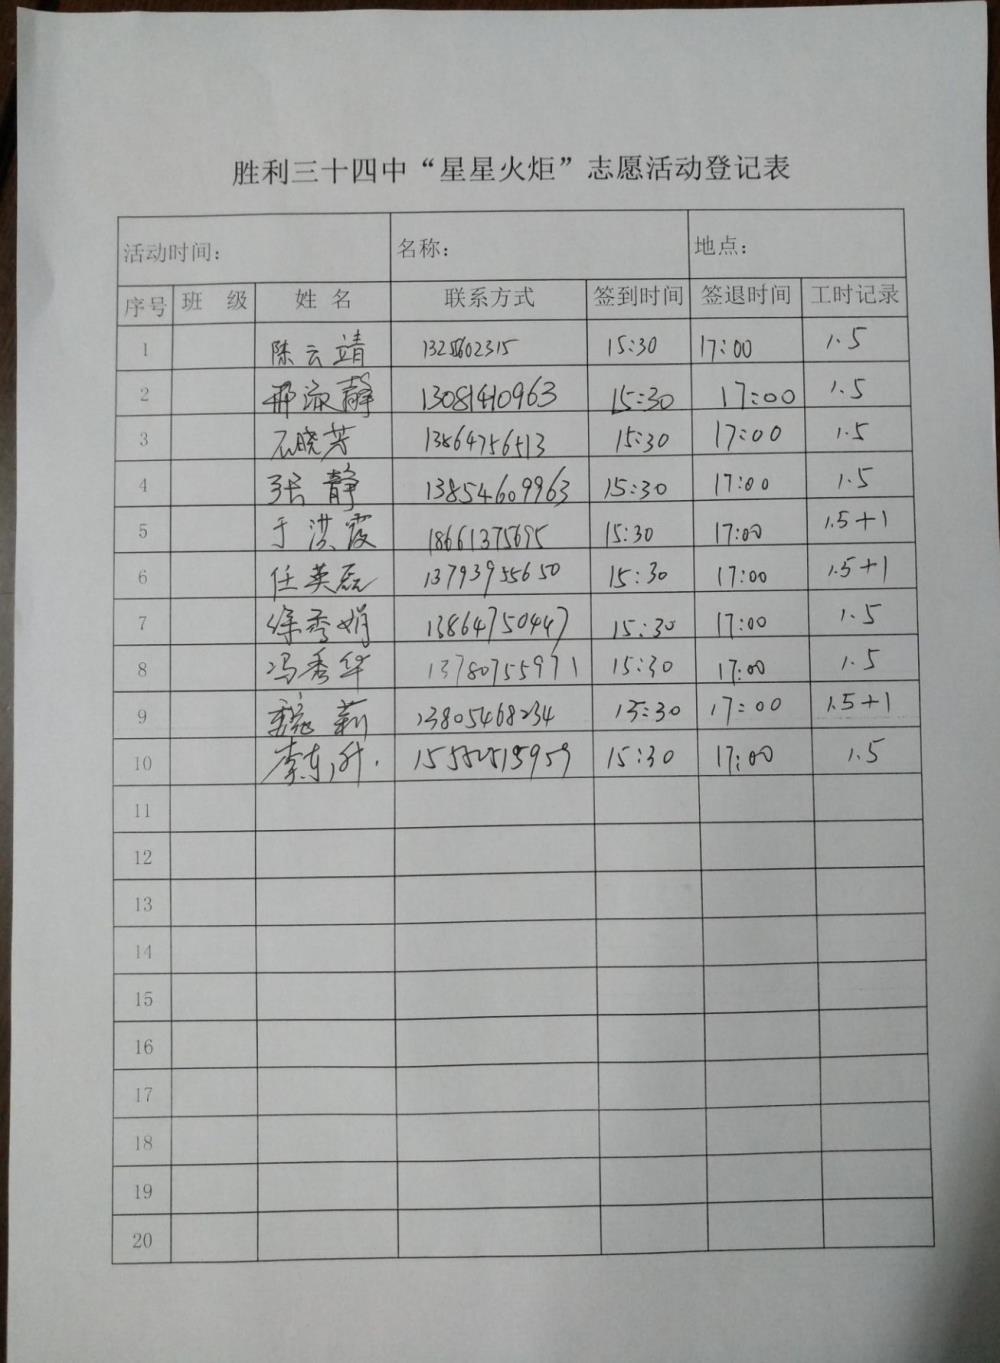 胜利三十四中“星星火炬”志愿活动登记表
活动时间: 名称: 地点:
序号 班 级 姓 名 联系方式 签到时间 签退时间 工时记录
1 陈云靖 15:30 17:00 1.5
2 邢淑静 13081410963 15:30 17:00 1.5
3 石晓芳 13864756513 15:30 17:00 1.5
4 张静 13854609963 15:30 17:00 1.5
5 于洪霞 18661375695 15:30 17:00 1.5+1
6 任英磊 13793955650 15:30 17:00 1.5+1
7 徐秀娟 13864750447 15:30 17:00 1.5
8 冯秀华 13780755971 15:30 17:00 1.5
9 魏莉 13805468234 15:30 17:00 1.5+1
10 李东升. 15:30 17:00 1.5
11
12
13
14
15
16
17
18
19
20